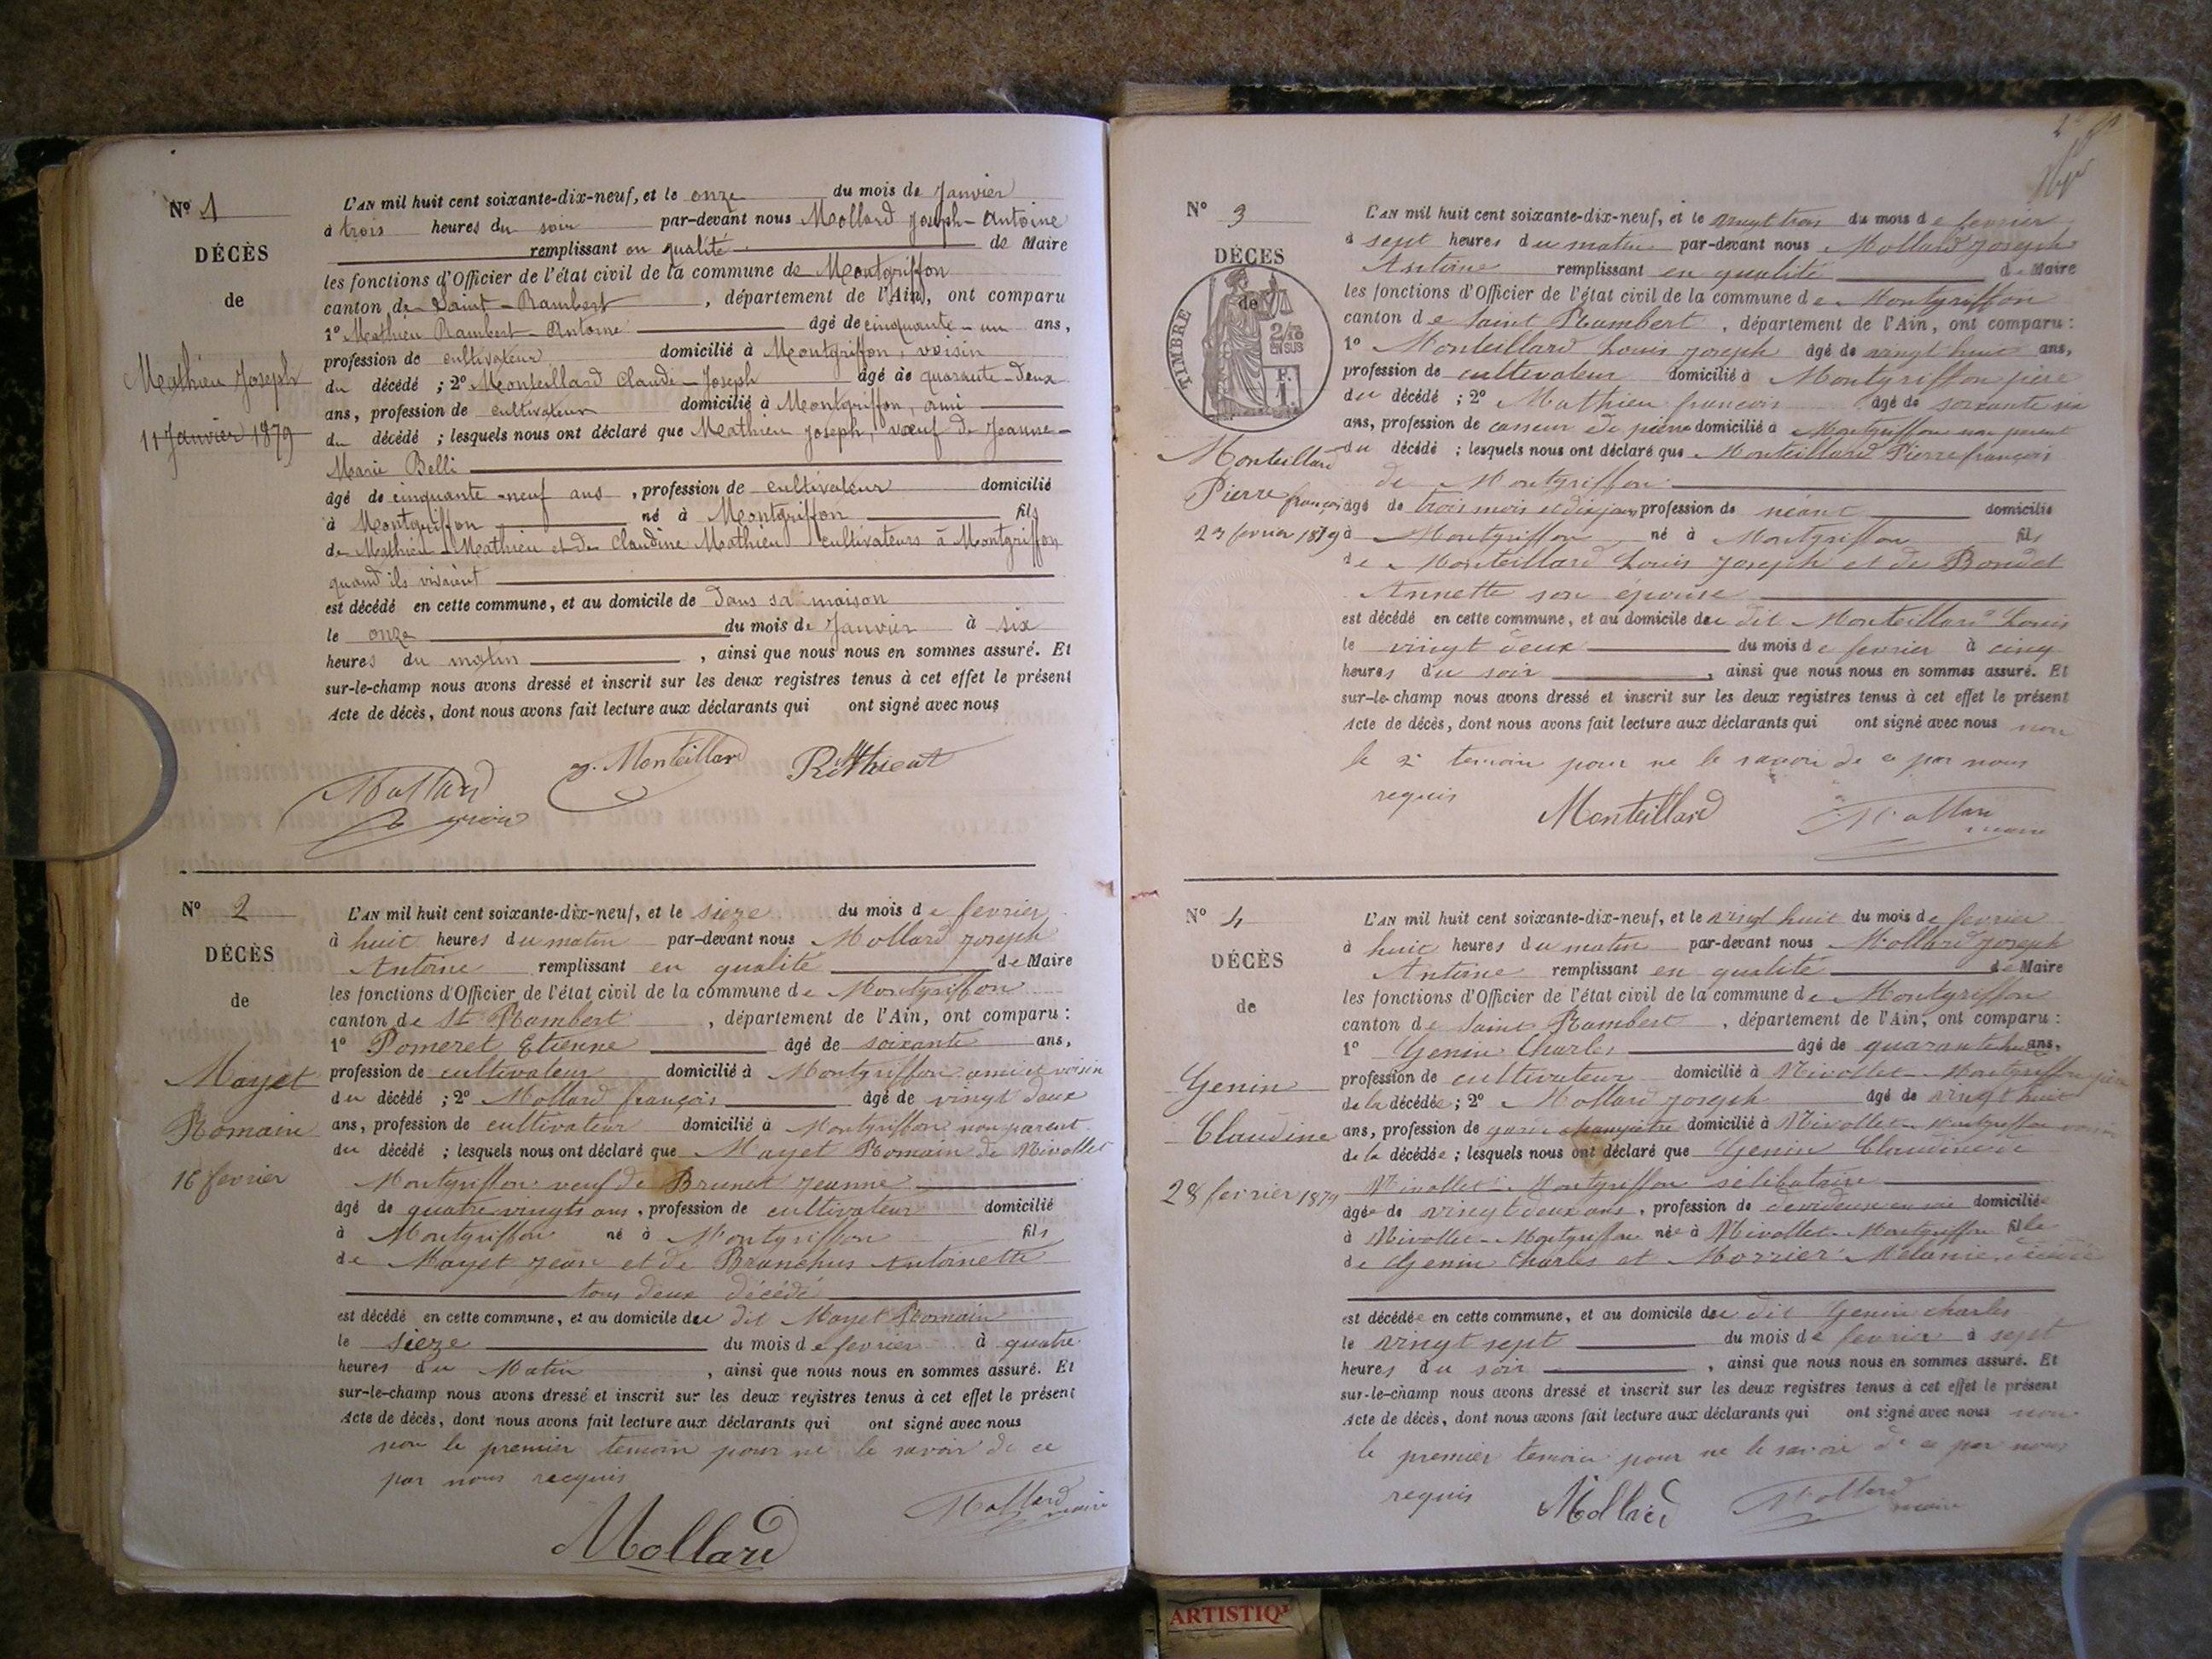 Nº 1
DÉCÈS
de
Mathieu Joseph
11 Janvier 1879
L'AN mil huit cent soixante-dix-neuf, et le onze du mois de Janvier
à trois heures du soir par-devant nous Mollard Joseph-Antoine
remplissant en qualité de Maire
les fonctions d'Officier de l'état civil de la commune de Montgriffon
canton de Saint-Rambert, département de l'Ain, ont comparu
1º Mathieu Rambert-Antoine âgé de cinquante-un ans,
profession de cultivateur domicilié à Montgriffon, voisin
du décédé ; 2º Monteillard Claude-Joseph âgé de quarante-deux
ans, profession de cultivateur domicilié à Montgriffon, ami
du décédé ; lesquels nous ont déclaré que Mathieu Joseph, vœuf de Jeanne-
Marie Belli
âgé de cinquante-neuf ans, profession de cultivateur domicilié
à Montgriffon né à Montgriffon fils
de Mathieu Mathieu et de Claudine Mathieu cultivateurs à Montgriffon
quand ils vivaient
est décédé en cette commune, et au domicile de dans sa maison
le onze du mois de Janvier à six
heures du matin, ainsi que nous nous en sommes assuré. Et
sur-le-champ nous avons dressé et inscrit sur les deux registres tenus à cet effet le présent
Acte de décès, dont nous avons fait lecture aux déclarants qui ont signé avec nous
Monteillard
Mollard
Nº 2
DÉCÈS
de
Mayet
Romain
16 fevrier
L'AN mil huit cent soixante-dix-neuf, et le sieze du mois de fevrier
à huit heures du matin par-devant nous Mollard Joseph
Antoine remplissant en qualité de Maire
les fonctions d'Officier de l'état civil de la commune de Montgriffon
canton de St Rambert, département de l'Ain, ont comparu :
1º Pomeret Etienne âgé de soixante ans,
profession de cultivateur domicilié à Montgriffon ami et voisin
du décédé ; 2º Mollard françois âgé de vingt deux
ans, profession de cultivateur domicilié à Montgriffon non parent
du décédé ; lesquels nous ont déclaré que Mayet Romain de Nivollet
Montgriffon veuf de Brunet Jeanne
âgé de quatre vingts ans, profession de cultivateur domicilié
à Montgriffon né à Montgriffon fils
de Mayet Jean et de Branchus Antoinette
tous deux décédé
est décédé en cette commune, et au domicile du dit Mayet Romain
le sieze du mois de fevrier à quatre
heures du Matin, ainsi que nous nous en sommes assuré. Et
sur-le-champ nous avons dressé et inscrit sur les deux registres tenus à cet effet le présent
Acte de décès, dont nous avons fait lecture aux déclarants qui ont signé avec nous
non le premier temoin pour ne le savoir de ce
par nous recquis
Mollard maire
Mollard
Nº 3
DÉCÈS
de
TIMBRE
2/10
EN SUS
Monteillard
Pierre françois
23 fevrier 1879
L'AN mil huit cent soixante-dix-neuf, et le vingt trois du mois de fevrier
à sept heures du matin par-devant nous Mollard Joseph
Antoine remplissant en qualité de Maire
les fonctions d'Officier de l'état civil de la commune de Montgriffon
canton de Saint Rambert, département de l'Ain, ont comparu :
1º Monteillard Louis Joseph âgé de vingt huit ans,
profession de cultivateur domicilié à Montgriffon père
du décédé ; 2º Mathieu françois âgé de soixante six
ans, profession de casseur de pierre domicilié à Montgriffon non parent
du décédé ; lesquels nous ont déclaré que Monteillard Pierre françois
de Montgriffon
âgé de trois mois et dix jours profession de néant domicilié
à Montgriffon né à Montgriffon fils
de Monteillard Louis Joseph et de Bondet
Annette son épouse
est décédé en cette commune, et au domicile du dit Monteillard Louis
le vingt deux du mois de fevrier à cinq
heures du soir, ainsi que nous nous en sommes assuré. Et
sur-le-champ nous avons dressé et inscrit sur les deux registres tenus à cet effet le présent
Acte de décès, dont nous avons fait lecture aux déclarants qui ont signé avec nous non
le 2e temoin pour ne le savoir de ce par nous
requis
Monteillard
Mollard maire
Nº 4
DÉCÈS
de
Genin
Claudine
28 fevrier 1879
L'AN mil huit cent soixante-dix-neuf, et le vingt huit du mois de fevrier
à huit heures du matin par-devant nous Mollard Joseph
Antoine remplissant en qualité de Maire
les fonctions d'Officier de l'état civil de la commune de Montgriffon
canton de Saint Rambert, département de l'Ain, ont comparu :
1º Genin Charles âgé de quarante ans,
profession de cultivateur domicilié à Nivollet Montgriffon père
de la décédée ; 2º Mollard Joseph âgé de vingt huit
ans, profession de garde champêtre domicilié à Nivollet Montgriffon voisin
de la décédée ; lesquels nous ont déclaré que Genin Claudine de
Nivollet Montgriffon sélibataire
âgée de vingt deux ans, profession de domicilié
à Nivollet Montgriffon née à Nivollet Montgriffon fille
de Genin Charles et Morrier Mélanie
est décédée en cette commune, et au domicile du dit Genin Charles
le vingt sept du mois de fevrier à sept
heures du soir, ainsi que nous nous en sommes assuré. Et
sur-le-champ nous avons dressé et inscrit sur les deux registres tenus à cet effet le présent
Acte de décès, dont nous avons fait lecture aux déclarants qui ont signé avec nous non
le premier temoin pour ne le savoir de ce par nous
requis
Mollard
Mollard maire
ARTISTIQ